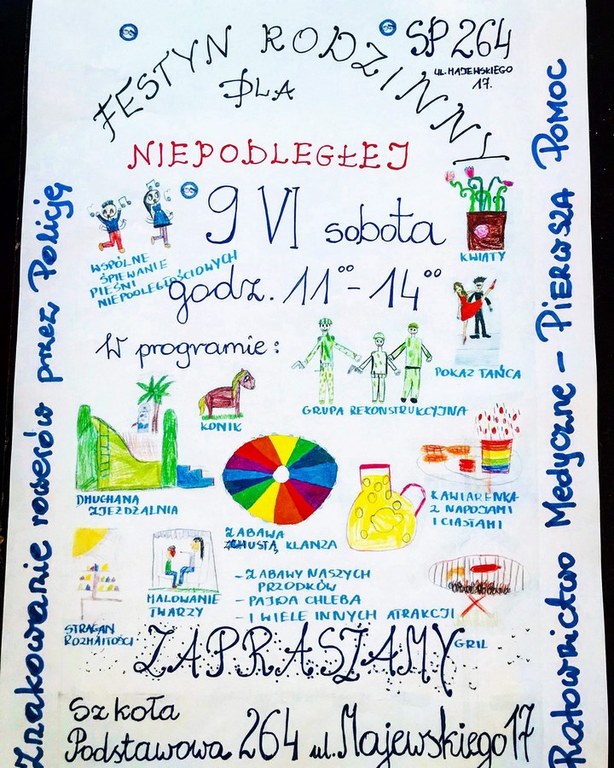 FESTYN RODZINNY
SP 264
UL. MAJEWSKIEGO
17.
DLA
NIEPODLEGŁEJ
9 VI sobota
godz. 11⁰⁰-14⁰⁰
WSPÓLNE
ŚPIEWANIE
PIEŚNI
NIEPODLEGŁOŚCIOWYCH
KWIATY
W programie:
POKAZ TAŃCA
GRUPA REKONSTRUKCYJNA
KONIK
DMUCHANA
ZJEŻDŻALNIA
ZABAWA
CHUSTĄ KLANZA
KAWIARENKA
Z NAPOJAMI
I CIASTAMI
STRAGAN
ROZMAITOŚCI
MALOWANIE
TWARZY
- ZABAWY NASZYCH
PRZODKÓW
- PAJDA CHLEBA
- I WIELE INNYCH ATRAKCJI
GRIL
ZAPRASZAMY
Szkoła
Podstawowa 264 ul. Majewskiego 17
Znakowanie rowerów przez Policję
Ratownictwo Medyczne - PIERWSZA POMOC